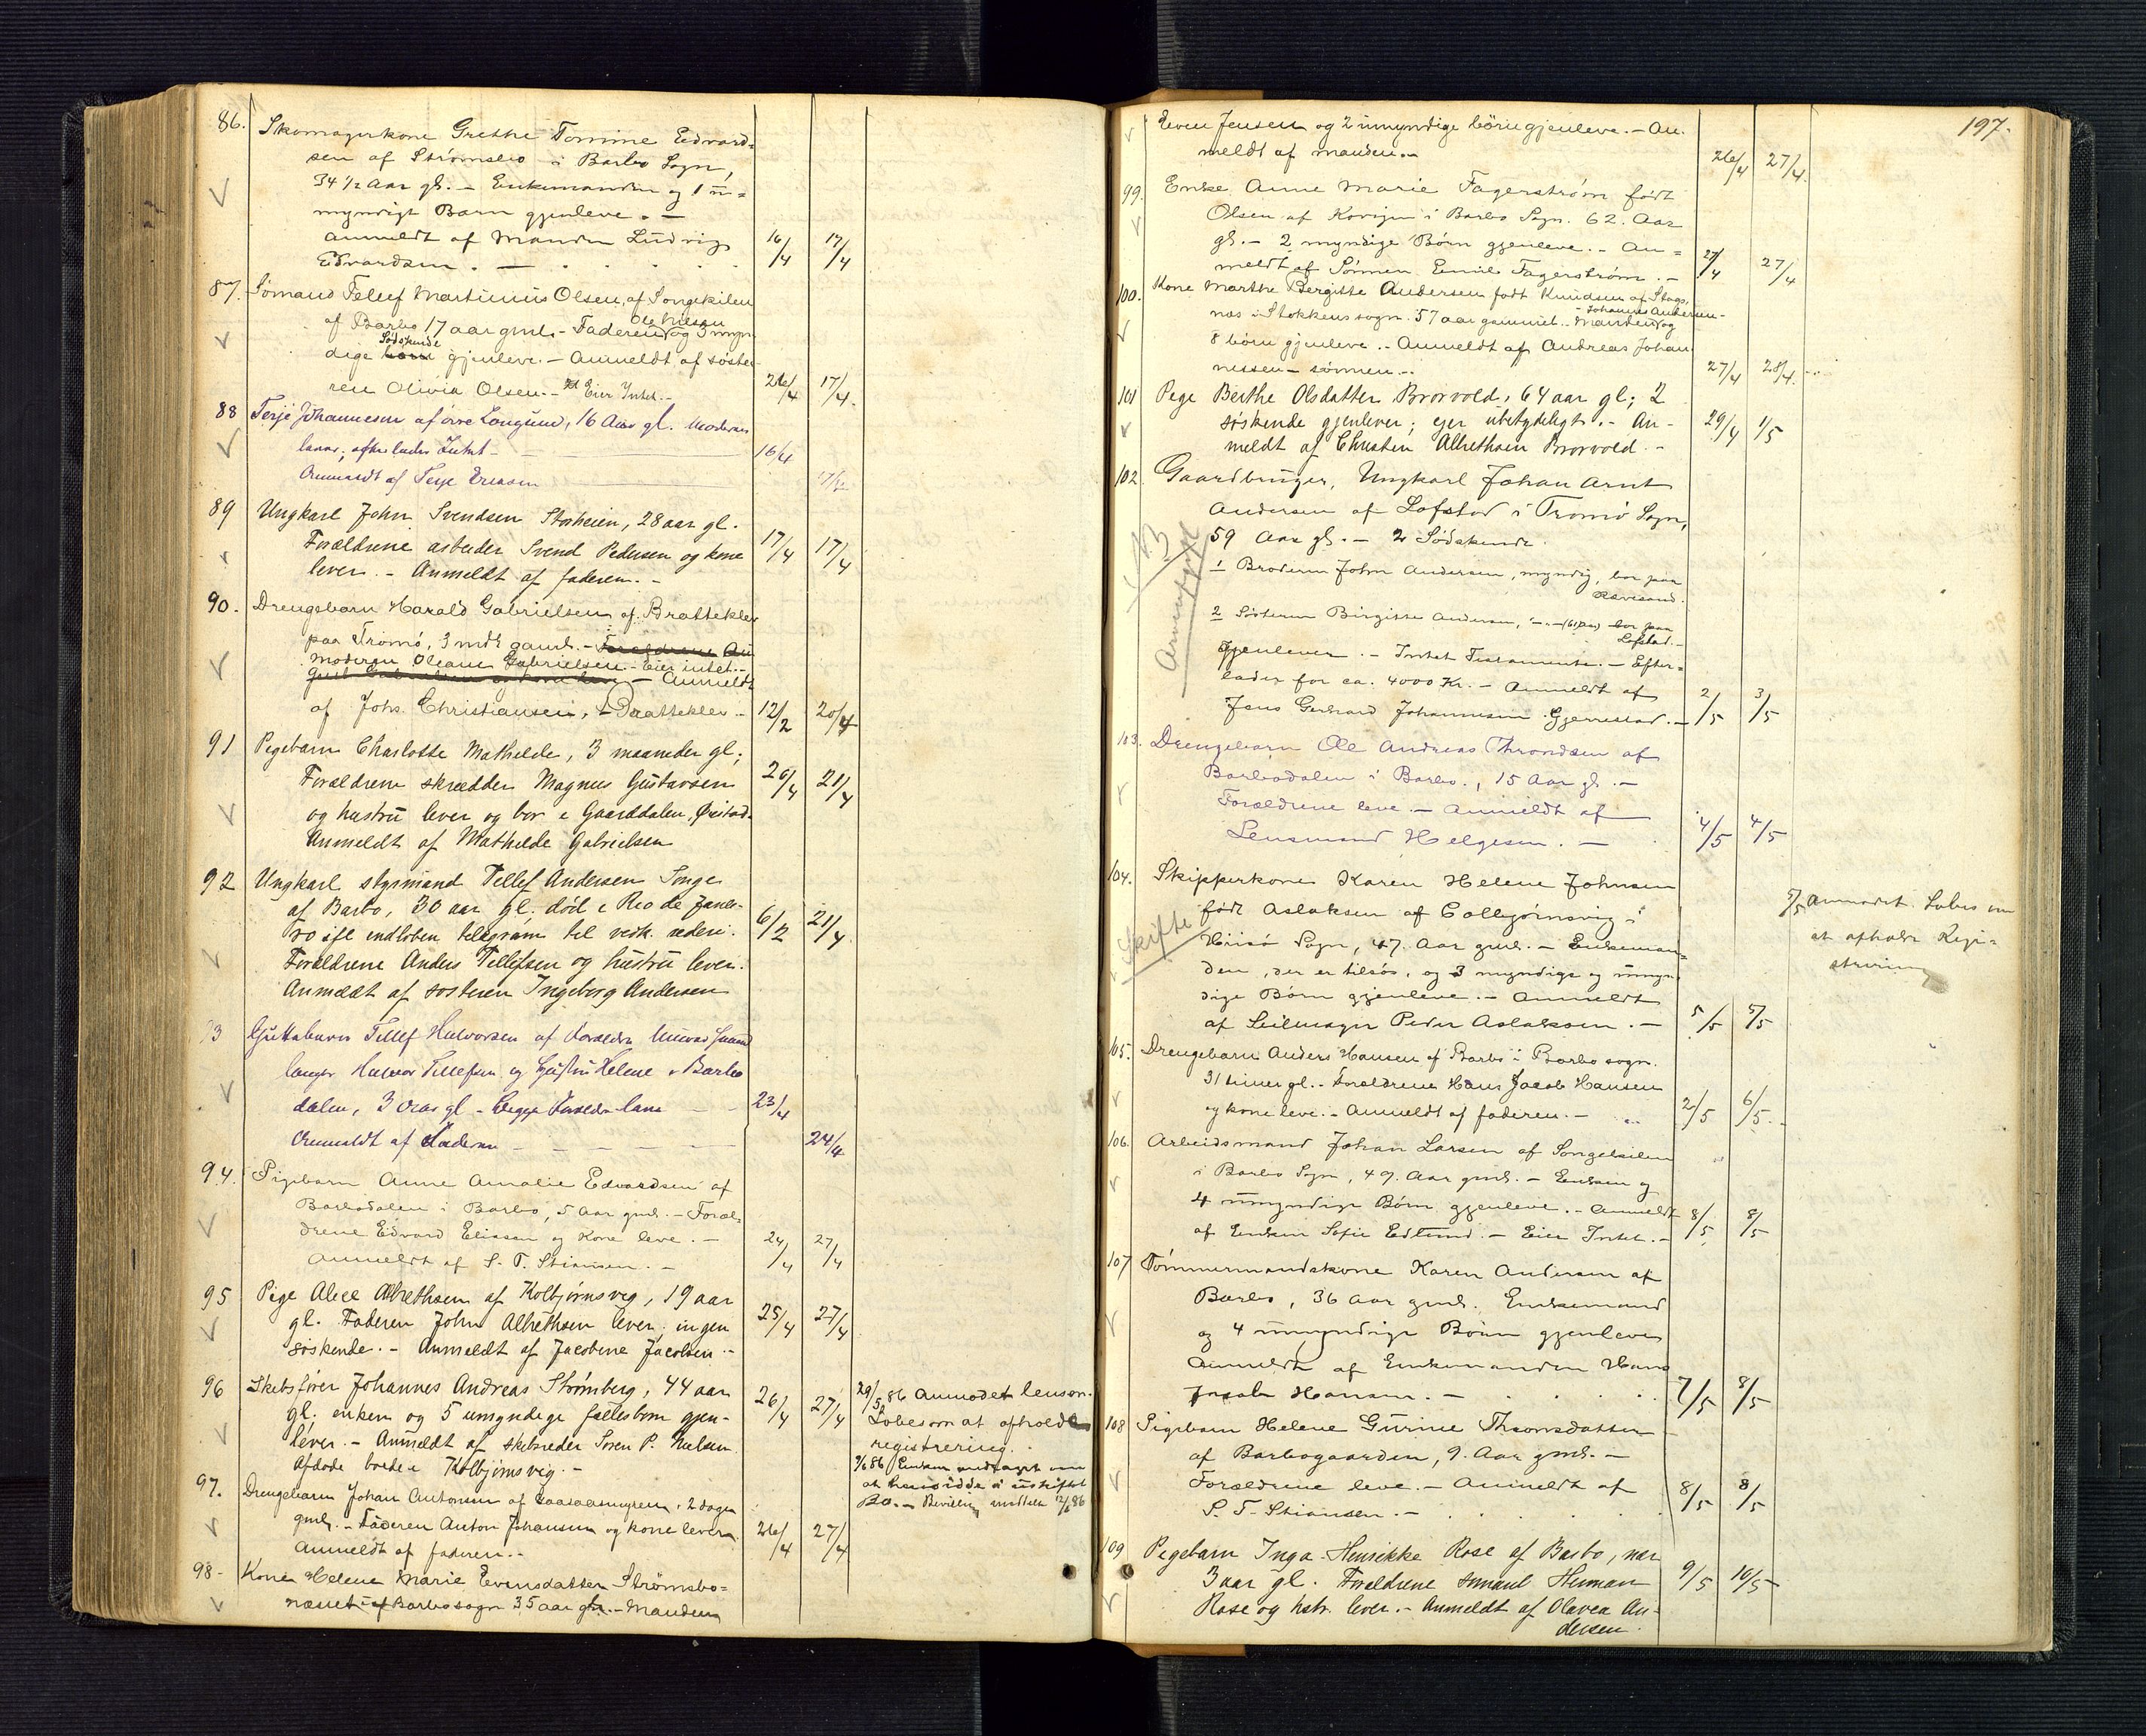 86. Skomagerkone Grethe Tomine Edvard=
sen af Strømsbo i Barbo Sogn,
34 1/2 Aar gl. — Enkemanden og 1 u=
myndigt Barn gjenleve. —
Anmeldt af Manden Ludvig
Edvardsen. — 16/4 17/4
87. Sømand Tellef Martinius Olsen, af Songekilen
af Barbo 17 aar gml. - Faderen Ole Nilsen og 3 myn
dige børn Södskende gjenleve. — Anmeldt af søste-
ren Olivia Olsen. - Eier Intet. - 26/4 17/4.
88 Terje Johannesen af Longum, 16 Aar gl. Moderen
lever; efterlader Intet - 16/4
Anmeldt af Terje Ericsen
89 Ungkarl John Svendsen Stoheien, 28 aar gl.
Forældrene arbeider Svend Pedersen og kone
lever. - Anmeldt af faderen. - 17/4 17/4
90. Drengebarn Harald Gabrielsen af Brattekler
paa Tromø, 3 mdr gaml. - Forældrene
moderen Oleane Gabrielsen - Eier intet. -
Anmeldt
af Johs. Christiansen, Brattekler - 12/2 20/4
91 Pegebarn Charlotte Mathilde, 3 maaneder gl;
Forældrene skrædder Magnus Gustavsen
og hustru lever og bor i Gaarddalen, Øiestad.
Anmeldt af Mathilde Gabrielsen 20/4 21/4
92 Ungkarl styrmand Tellef Andersen Songe
af Barbo, 30 aar gl. død i Rio de Janei-
ro ifl indløben telegram til vedk. rederi.
Forældrene Anders Tellefsen og hustru lever.
Anmeldt af søsteren Ingeborg Andersen 6/2 21/4
93 Guttebarn Tellef Halvorsen af Forældre
Halvor Tellefsen og Hustru Helene i Barbo
dalen, 3 Aar gl - Begge Forældre leve 23/4
Anmeldt af Faderen 24/4
94. Pigebarn Anne Amalie Edvardsen af
Barbodalen i Barbo, 5 Aar gml. - Foræl-
drene Edvard Eliasen og Kone leve. -
Anmeldt af S. T. Stiansen. - 24/4 27/4
95 Pige Alice Albrethsen af Kolbjørnsvig, 19 aar
gl. Faderen John Albrethsen lever; ingen
søskende. - Anmeldt af Jacobine Jacobsen - 25/4 27/4
96 Skibsfører Johannes Andreas Strømberg, 44 aar
gl. enken og 5 umyndige fællesbørn gjen-
lever. - Anmeldt af skibsreder Søren P. Nielsen.
Afdøde boede i Kolbjørnsvig. - 26/4 27/4
29/5 86 Anmodet lensm.
Lobes om at afholde
registrering.
7/6 86 Enken
at hensidde i uskiftet
Bo. - Bevilling meddelt 12/6 86
97. Drengebarn Johan Antonsen af 2 dage
gml. - Faderen Anton Johansen og kone lever.
Anmeldt af faderen. - 26/4 27/4
98- Kone Helene Marie Evensdatter Strömsbo=
næsset af Barbo sogn 35 aar gl. - Manden
197.
Even Jensen og 2 umyndige börn gjenleve. - An-
meldt af manden. - 26/4 27/4.
99. Enke Anne Marie Fagerstrøm født
Olsen af i Barbo Sogn. 62. Aar
gl. - 2 myndige Børn gjenleve. - An=
meldt af Sønnen Emil Fagerstrøm. - 27/4 27/4
100. Kone Marthe Bergitte Andersen født Knudsen af Stags-
næs i Stokkens sogn. 57 aar gammel. - Manden Johannes Andersen og
8 børn gjenleve. - Anmeldt af Andreas Johan-
nessen - sönnen. - 27/4 28/4.
101 Pege Berthe Olsdatter Brorvold, 64 aar gl; 2
søskende gjenlever; ejer ubetydeligt. - An-
meldt af Christen Albrethsen Brorvold. - 29/4 1/5
102. Gaardbruger, Ungkarl Johan Arnt
Andersen af Lofstad i Tromø Sogn,
59 Aar gl. - 2 Södskende.
1 Broderen John Andersen, myndig, bor paa
Revesand.
2 Søsteren Birgitte Andersen, bor paa
Lofstad. -
gjenlever. - Intet Testamente. - Efter=
lader for ca. 4000 Kr. - Anmeldt af
Jens Gerhard Johannesen Gjerrestad. - 2/5 3/5
103. Drengebarn Ole Andreas Throndsen af
Barbodalen i Barbo., 15 Aar gl. -
Forældrene leve. - Anmeldt af
Lensmand Helgesen. - 4/5 4/5
104. Skipperkone Karen Helene Johnsen
født Aslaksen af Colbjørnsvig i
Hiisø Sogn, 47. Aar gml. - Enkeman=
den, der er tilsøs, og 3 myndige og umyn
dige Børn gjenleve. - Anmeldt
af Seilmager Peder Aslaksen. - 5/5 5/5
Skifte
5/5 Anmodet Lobes om
at afholde Regi=
strering
105. Drengebarn Anders Hansen af Barbo i Barbo sogn.
31 timer gl. - Forældrene Hans Jacob Hansen
og kone leve. - Anmeldt af faderen. - 2/5 6/5.
106. Arbeidsmand Johan Larsen af Songekilen
i Barbo Sogn, 49. Aar gml. - Enken og
4 umyndige Børn gjenleve. - Anmeldt
af Enken Sofie Edlund. - Eier Intet. - 8/5 8/5
107 Tømmermandskone Karen Andersen af
Barbo, 36 Aar gml. Enkemand
og 4 umyndige Børn gjenleve
Anmeldt af Enkemanden Hans
Jacob Hansen. - 7/5 8/5
108 Pigebarn Helene Gurine Thomsdatter
af Barbogaarden, 9. Aar gml. -
Forældrene leve. - Anmeldt af
S. T. Stiansen. - 8/5 8/5
109 Pegebarn Inga Henrikke Rose af Barbo, nær
3 aar gl. Forældrene smand Herman
Rose og hstr. lever. - Anmeldt af Olavea An-
dersen. 9/5 10/5